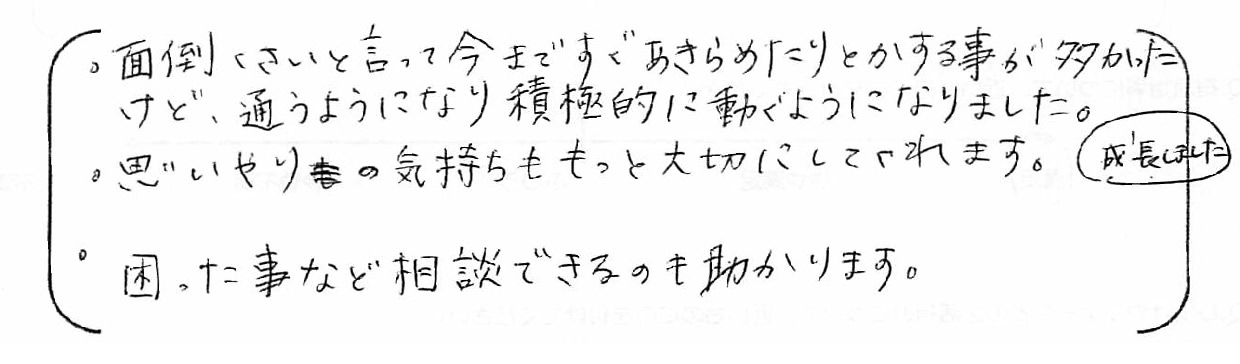 。面倒くさいと言って今まですぐあきらめたりとかする事が多かった
けど、通うようになり積極的に動くようになりました。
。思いやりの気持ちももっと大切にしてくれます。 成長しました
。困った事など相談できるのも助かります。